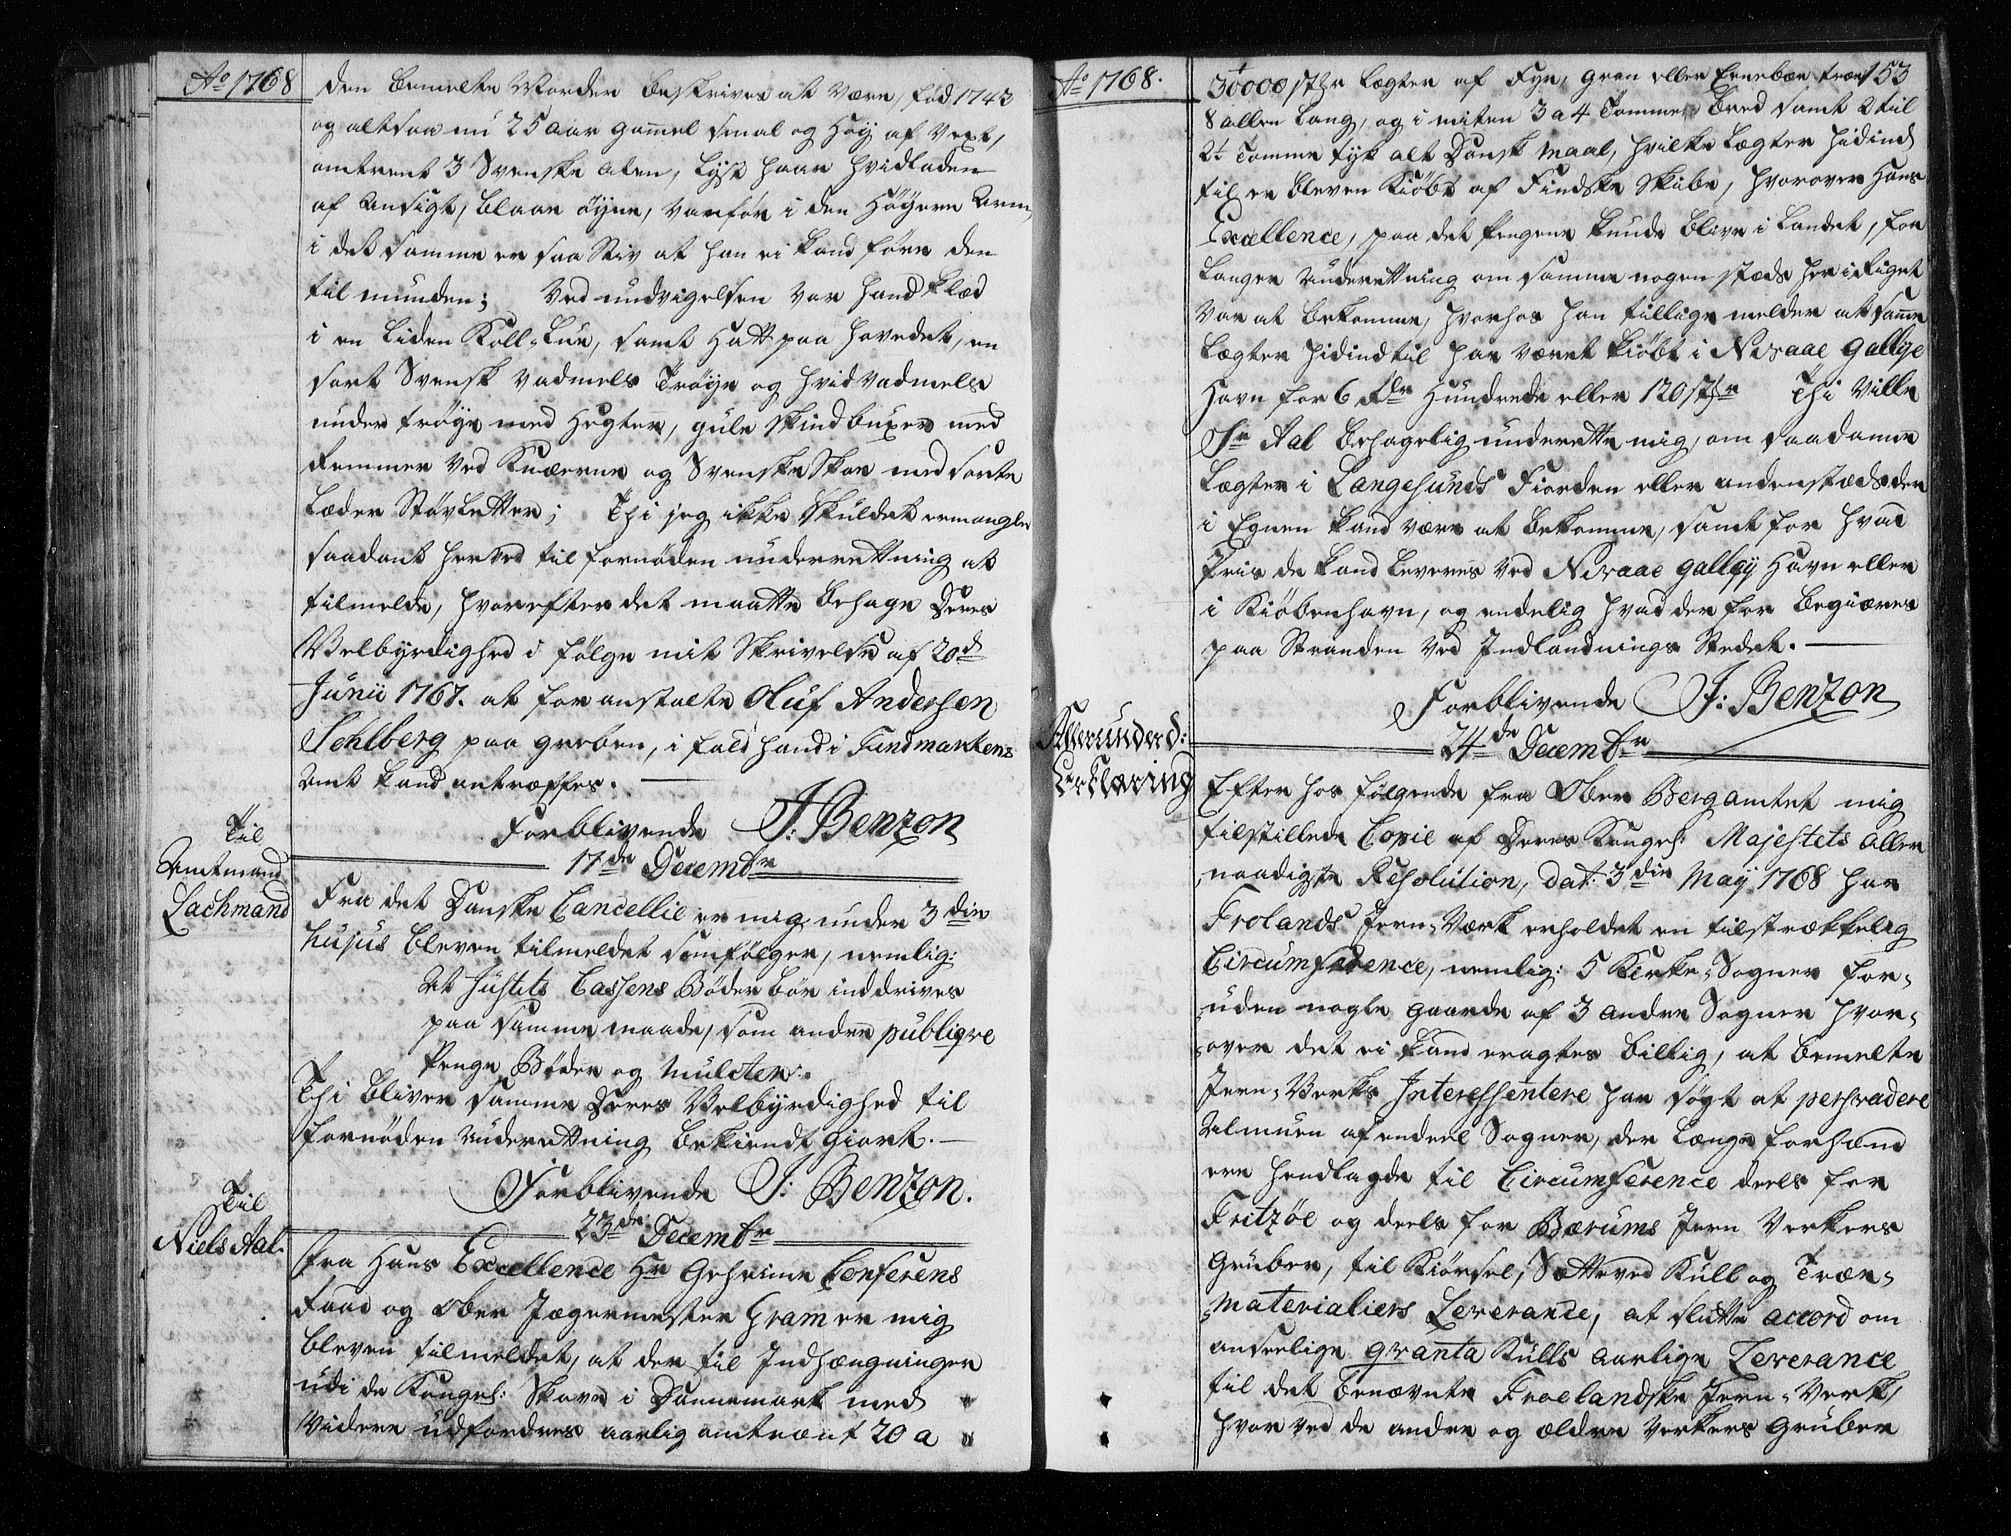 Ao 1768
den bemelte Morder beskrives at være, fød 1743
og altsaa nu 25 aar gammel smal og høy af Vext,
omtrent 3 Svenske Alen, lyst haar hvidladen
af Ansigt, blaae øyne, Vanfør i den Høyere Arm,
i det samme er saa Stiv at han ei kand føre den
til munden; Ved undvigelsen var hand klæd
i en liden Koll-Lue, samt Hatt paa hovedet, en
sort Svensk Vadmels Trøye og hvid Vadmels
under trøye med Hegter, gule skindbuxer med
Remmer ved Knæerne og Svenske Skoe med sorte
Læder Støvletter; Thi jeg ikke skulde ermangle
saadant herved til fornøden underrettning at
tilmelde, hvorefter det maatte behage Deres
Velbyrdighed i følge mit Skrivelse af 20d
Junii 1767. at foranstalte Oluf Andersen
Sehlberg paa greben, i fald hand i Findmarkens
Amt kand antræffes.
Forblivende J: Benzon
17de Decembr
Til
Amtmand
Lachmand
Fra det Danske Cancellie er mig under 3die
hujus bleven tilmeldet som følger, nemlig:
At Justits Cassens Bøder bør inddrives
paa samme maade, som andre publiqve
Penge Bøder og mulcter.
Thi bliver samme Deres Velbyrdighed til
fornøden Underrettning bekiendt giort.
Forblivende J: Benzon.
23de Decembr
Til
Niels Aal.
Fra Hans Excellence Hr Geheime Conferens
Raad og Ober Jægermester Gram er mig
bleven tilmeldet, at der til Indhængninger
udi de Kongel: Skove i Dannemark med
Videre udfordres aarlig omtrent 20 a
Ao 1768.
153
30000 stkr Lægter af Fyr, gran eller Eenebær træe
8 allen lang, og i miten 3 a 4 Tommer bred samt 2 til
2½ Tomme tyk alt Dansk maal, hvilke Lægter hidind
til er bleven kiøbt af Findske Skibe, hvorover Hans
Excellence, paa det pengene kunde blive i Landet, for
langer Underettning om samme nogen stæds her i Riget
var at bekomme, hvorhos han tillige melder at samme
Lægter hidindtil har været kiøbt i Nivaae galleje
Havn for 6 Rdr Hundrede eller 120 stkr Thi ville
Sr Aal behagelig underette mig, om saadanne
Lægter i Langesunds Fiorden eller andenstæds der
i Egnen kand være at bekomme, samt for hvad
Priis de kand leveres ved Nivaae galleij Havn eller
i Kiøbenhavn, og endelig hvad der for begiæres
paa Stranden ved Indladnings Stedet.
Forblivende J: Benzon
24de Decembr
Allerunderd:
Erklæring
Efter hos følgende fra Ober Bergamtet mig
tilstillede Copie af Deres Kongel: Majestets aller
naadigste Resolution, dat: 3die May 1768 har
Frolands Jern-Værk erholdet en tilstrækkelig
Circumference, nemlig: 5 Kirke-Sogner for-
uden nogle gaarde af 3 andre Sogner hvor-
over det ei kand eragtes billig, at bemelte
Jern-Verks Interessentere har søgt at persvadere
Almuen af endeel Sogner, der længe forhæn
ere henlagde til Circumference deels for
Fritzøe og deels for Bærums Jern Verkers
Gruber, til Kiørsel, Sætteved Kull og Træe-
materialiers Leverance, at slutte accord om
anseelige qvanta Kulls aarlige Leverance
til det benævnte Froelandske Jern-Verk,
hvorved de andre og ældre Verkers Gruber